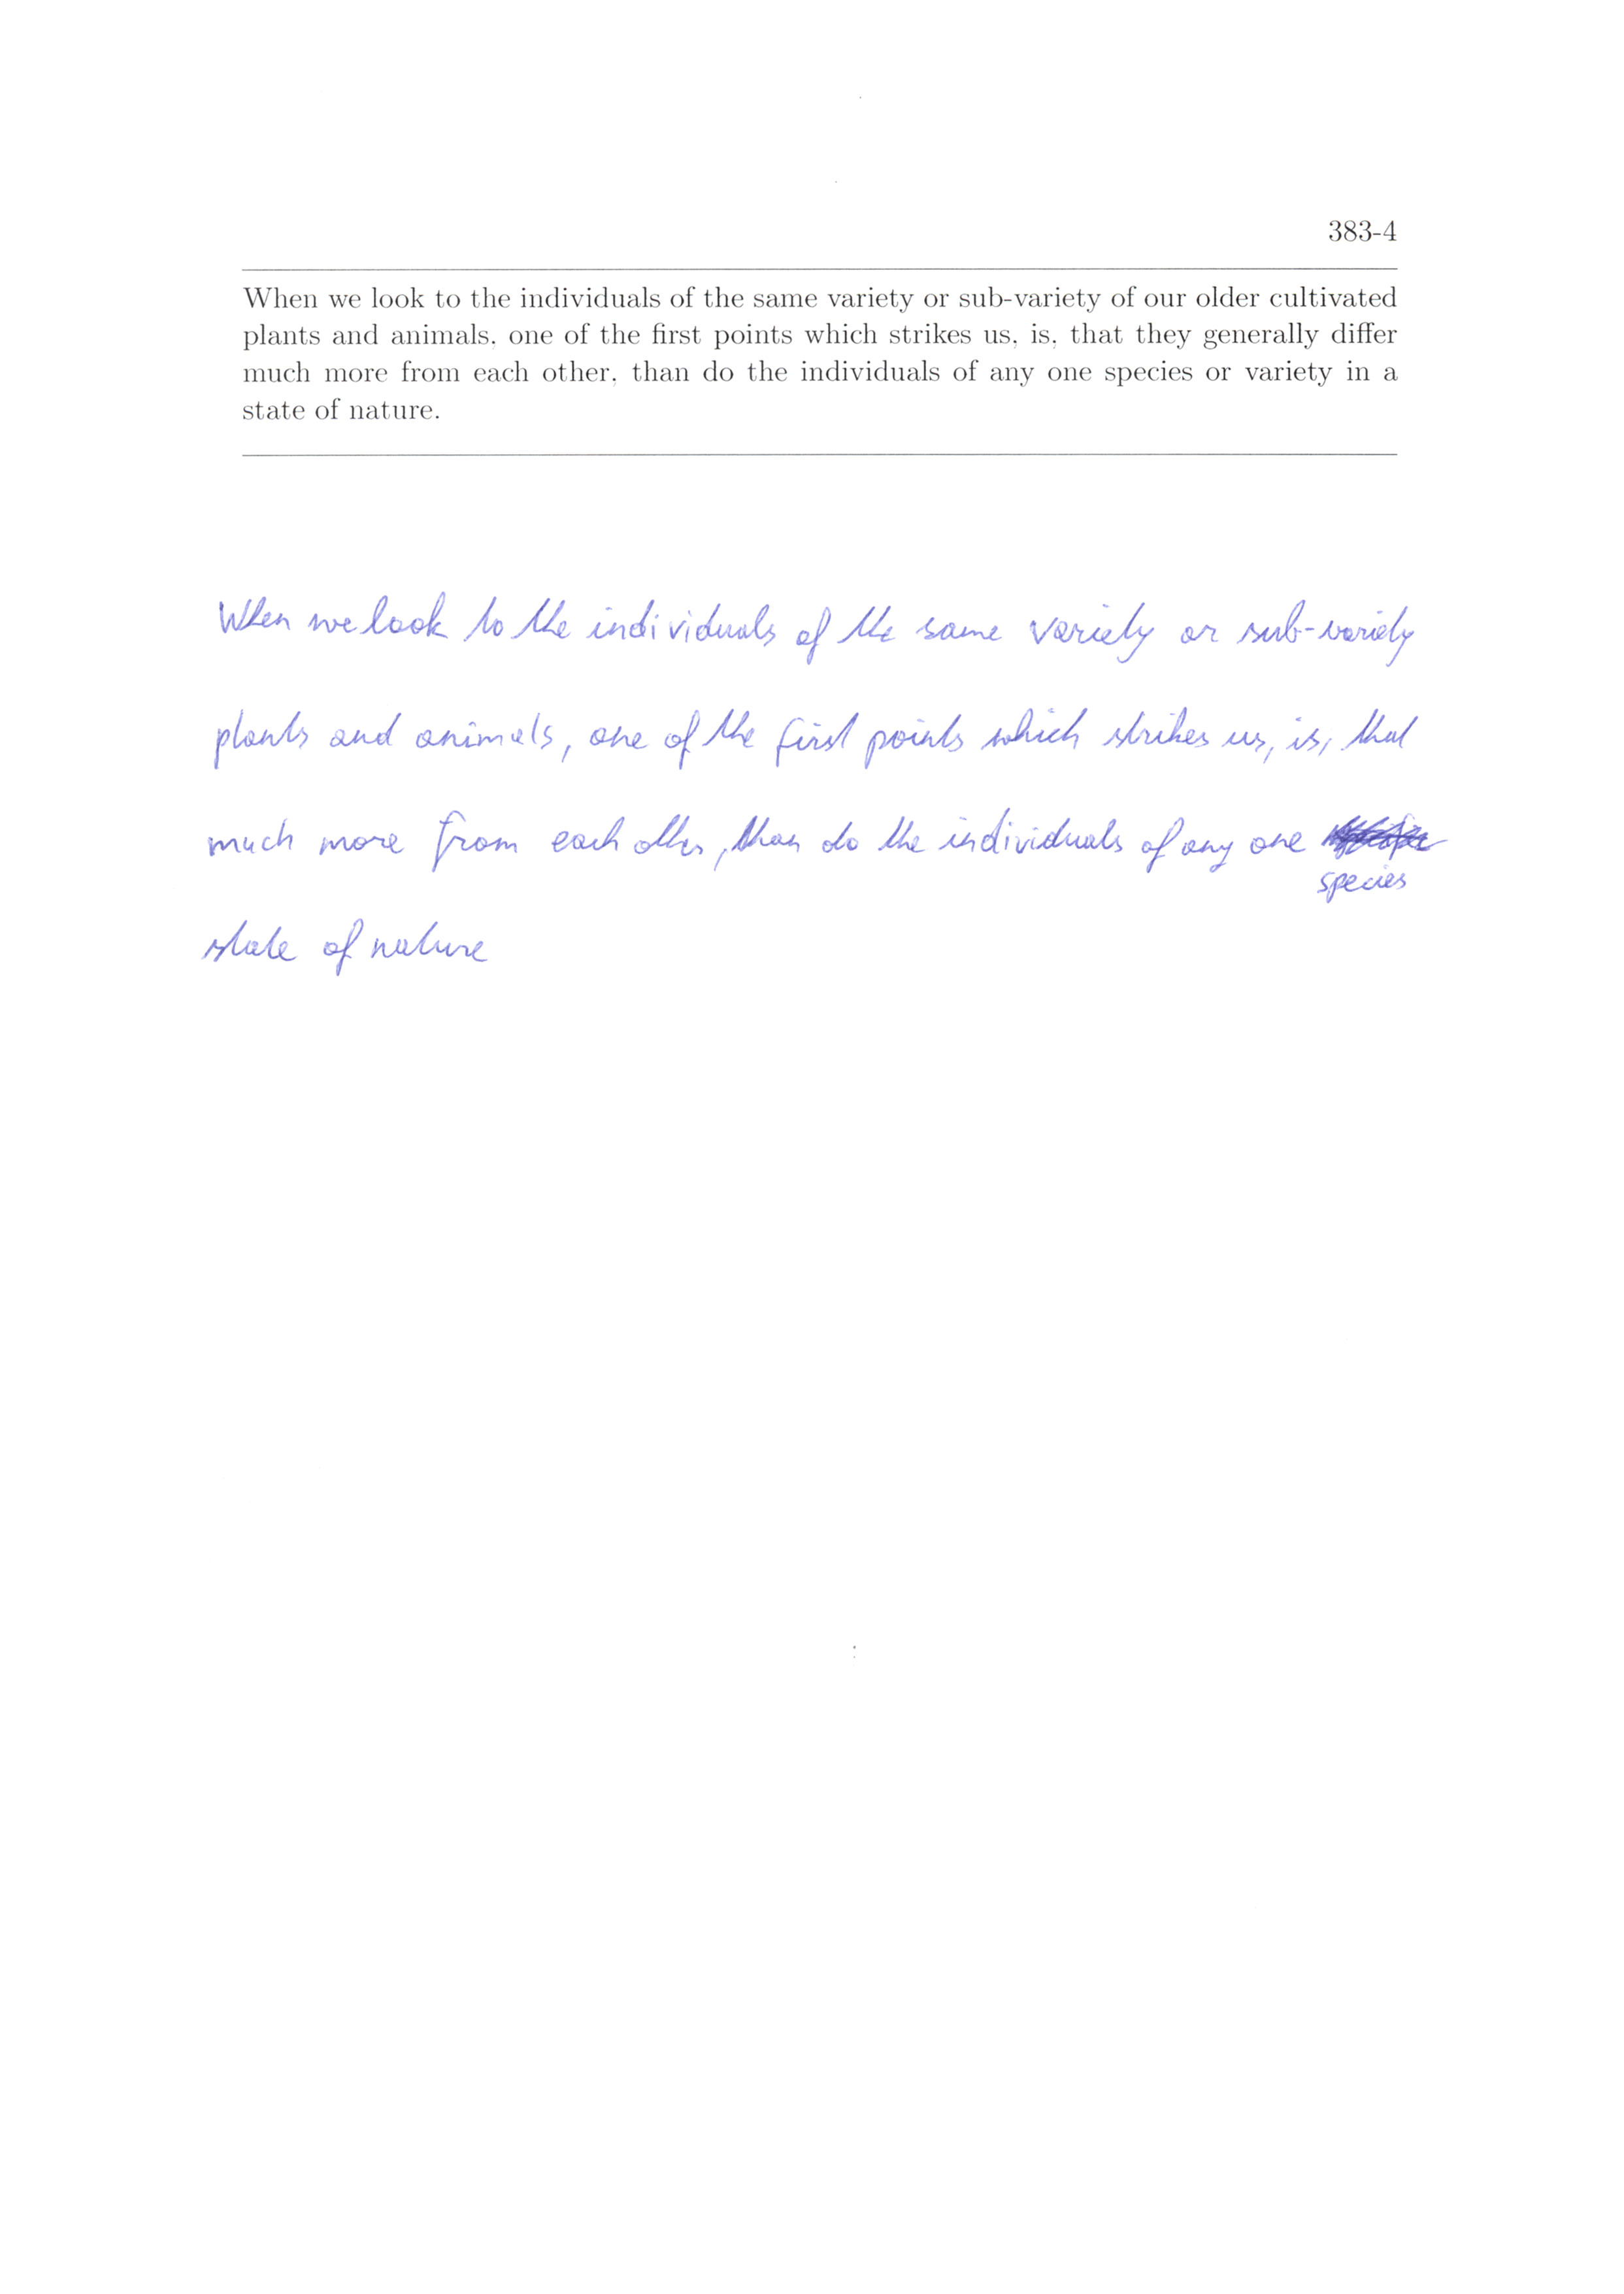 383-4
When we look to the individuals of the same variety or sub-variety of our older cultivated
plants and animals, one of the first points which strikes us, is, that they generally differ
much more from each other, than do the individuals of any one species or variety in a
state of nature.
When we look to the individuals of the same variety or sub-variety
plants and animals, one of the first points which strikes us, is, that
much more from each other, than do the individuals of any one
species
state of nature